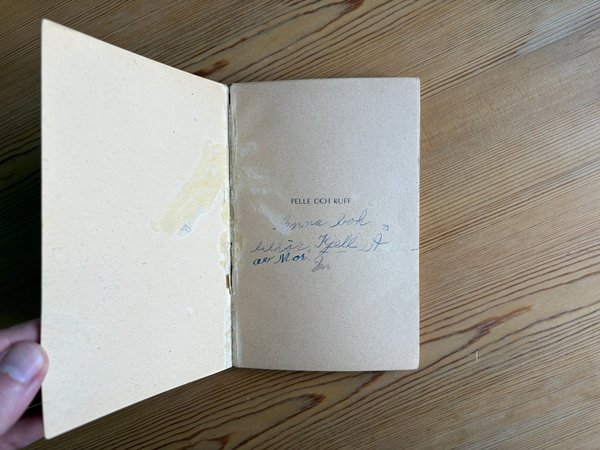 PELLE OCH RUFF
Denna bok
tillhör Kjell Å
av Mor.